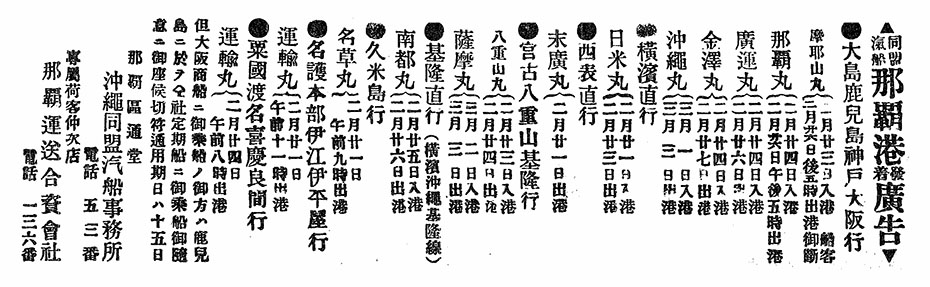 ▲同盟汽船那覇港發着廣告▼
●大島鹿兒島神戸大阪行
摩耶山丸 二月廿三日入港 船客
二月廿六日後五時出港御斷
那覇丸 二月廿四日入港
二月廿六日午後五時出港
廣運丸 二月廿四日入港
二月廿六日出港
金澤丸 二月廿四日入港
二月廿七日出港
沖繩丸 三月一日入港
三月 日出港
●橫濱直行
日米丸 二月廿 日入港
二月廿 日出港
●西表行
末廣丸 二月廿一日入港
二月廿二日出港
●宮古八重山基隆行
八重山丸 二月廿三日入港
二月廿四日出港
薩摩丸 二月 日入港
三月二日出港
●基隆直行(橫濱沖繩基隆線)
南都丸 二月廿五日入港
二月廿六日出港
●久米島行
名草丸 二月廿一日
午前九時出港
●名護本部伊江伊平屋行
運輸丸 二月廿一日
午前十一時出港
●粟國渡名喜慶良間行
運輸丸 二月廿四日
午前八時出港
但大阪商船ニ御乘船ノ御方ハ鹿兒
島ニ於テ仝社定期船ニ御乘船御隨
意ニ御座候切符通用期日ハ十五日
那覇區通堂
沖繩同盟汽船事務所
電話 五二番
專屬荷客仲次店
那覇運送合資會社
電話 一三六番